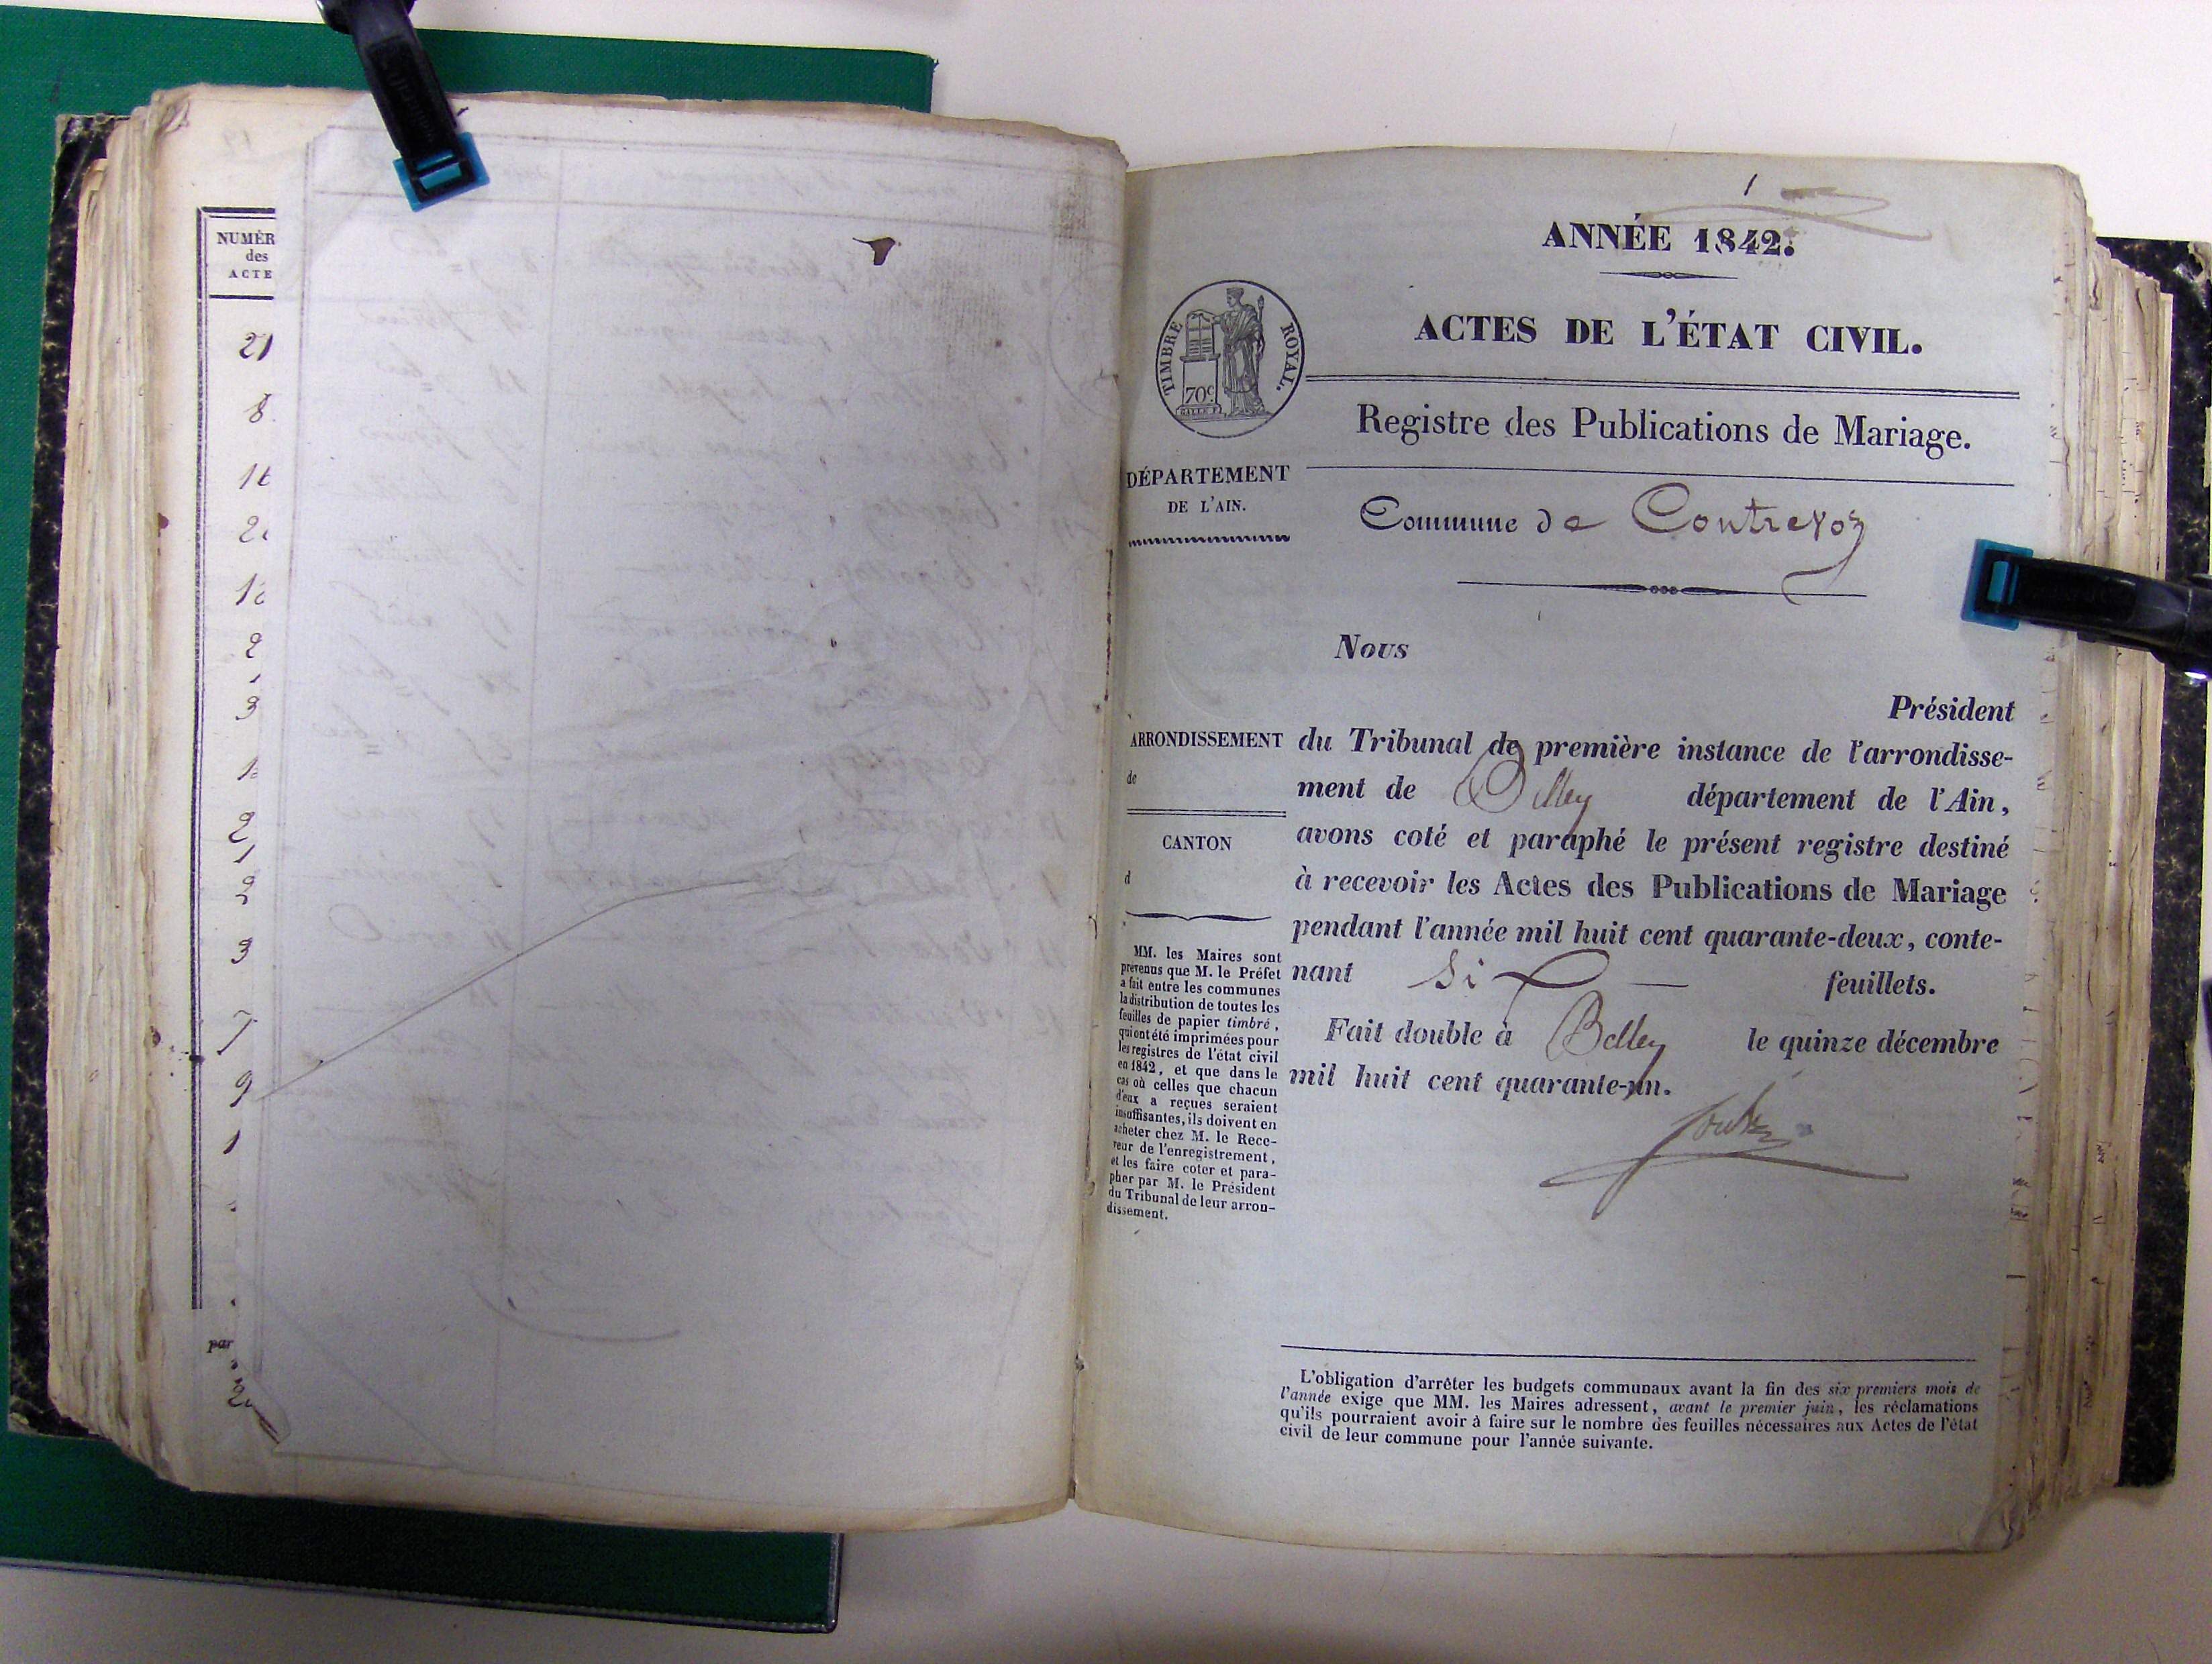 NUMÉR
des
ACTE
21
8
2
3
2
1
2
3
7
9
1
par
1
ANNÉE 1842.
TIMBRE ROYAL.
70c
ACTES DE L'ÉTAT CIVIL.
Registre des Publications de Mariage.
DÉPARTEMENT
DE L'AIN.
Commune de Contrevoz
Nous
Président
ARRONDISSEMENT
de
CANTON
d
du Tribunal de première instance de l'arrondisse-
ment de Belley département de l'Ain,
avons coté et paraphé le présent registre destiné
à recevoir les Actes des Publications de Mariage
pendant l'année mil huit cent quarante-deux, conte-
nant six feuillets.
Fait double à Belley le quinze décembre
mil huit cent quarante-un.
MM. les Maires sont
prévenus que M. le Préfet
a fait entre les communes
la distribution de toutes les
feuilles de papier timbré,
qui ont été imprimées pour
les registres de l'état civil
en 1842, et que dans le
cas où celles que chacun
d'eux a reçues seraient
insuffisantes, ils doivent en
acheter chez M. le Rece-
veur de l'enregistrement,
et les faire coter et para-
pher par M. le Président
du Tribunal de leur arron-
dissement.
L'obligation d'arrêter les budgets communaux avant la fin des six premiers mois de
l'année exige que MM. les Maires adressent, avant le premier juin, les réclamations
qu'ils pourraient avoir à faire sur le nombre des feuilles nécessaires aux Actes de l'état
civil de leur commune pour l'année suivante.